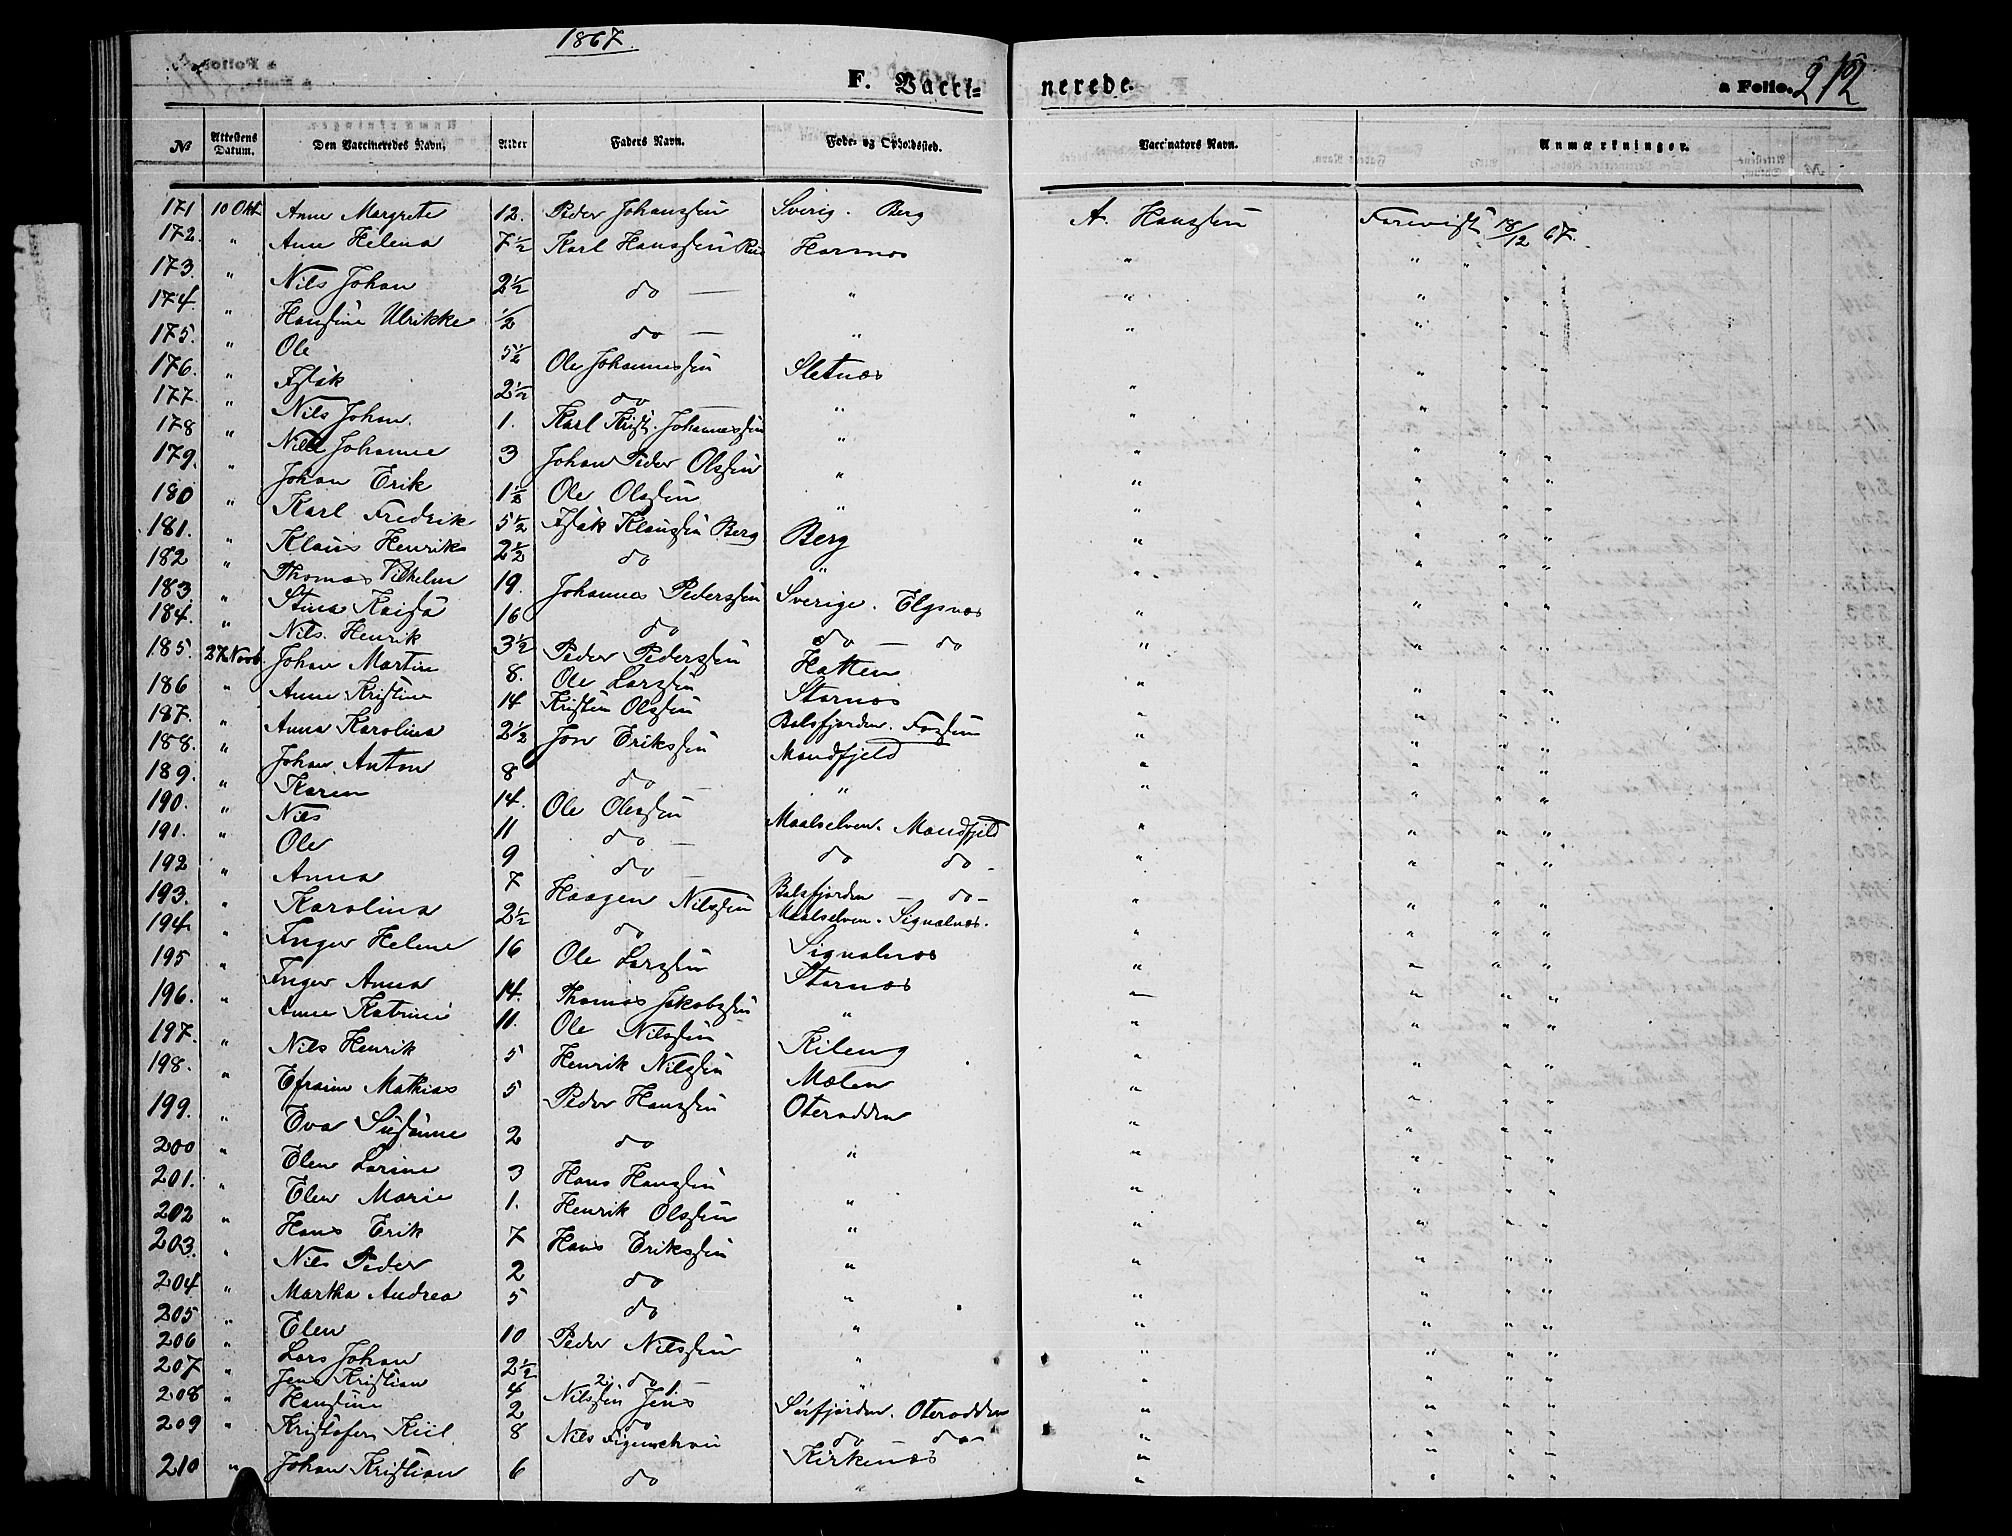 1867.
F. Vacci-
nerede.
a Folio. 212
№ Attestens Datum. Den Vaccineredes Navn. Alder Faders Navn. Føde- og Opholdssted. Vaccinators Navn. Anmærkninger.
171 10 Okt Anne Margrete 12. Peder Johanssen Sverig. Berg A. Hanssen Forevist 18/12 67.
172. " Ane Helena 7½ Karl Hanssen Harnæs " " " "
173. " Nils Johan 2½ do — " " " " "
174. " Hansine Ulrikke ½ do — " " " " "
175. " Ole 5½ Ole Johannessen Sletnæs " " " "
176. " Isak 2½ do " " " " "
177. " Nils Johan. 1. Karl Krist. Johannessen " " " " "
178 " Johanne 3 Johan Peder Olssen " " " " "
179. " Johan Erik 1½ Ole Olssen " " " " "
180 " Karl Fredrik 5½ Isak Klaussen Berg Berg " " " "
181. " Klaus Henrik 2½ do " " " " "
182 " Thomas Vilhelm 19. Johannes Pederssen Sverige. Elgsnæs " " " "
183. " Stina Kaisa 16 do do — do " " " "
184. " Nils. Henrik 3½ Peder Pederssen Hatten " " " "
185. 27 Novb Johan Martin 8. Ole Larssen Stornæs " " " "
186 " Anne Kristine 14 Kristen Olssen Balsfjorden. " " " "
187. " Anna Karolina 2½ Jon Erikssen Mandfjeld " " " "
188. " Johan Anton 8 do — " " " " "
189. " Karen 14. Ole Olessen Maalselven. Mandfjeld " " " "
190. " Nils 11 do — do do - " " " "
191. " Ole 9 do — Balsfjorden — do - " " " "
192 " Anna 7 Haagen Nilssen Maalselven. Signalnæs. " " " "
193. " Karolina 2½ do Signalnæs " " " "
194. " Inger Helene 16 Ole Larssen Stornæs " " " "
195 " Inger Anna 14. Thomas Jakobssen " " " " "
196. " Anne Katrine 11. Ole Nilssen Kileng " " " "
197. " Nils Henrik 5 Henrik Nilssen Mælen " " " "
198. " Efraim Mathias 5 Peder Hanssen Oteradden " " " "
199. " Eva Susanne 2 do " " " " "
200 " Elen Larine 3 Hans Hanssen " " " " "
201. " Elen Marie 1. Henrik Olssen " " " " "
202 " Hans Erik 7 Hans Erikssen " " " " "
203. " Nils Peder 2 do " " " " "
204 " Martha Andrea 5 do " " " " "
205 " Elen 10 Peder Nilssen " " " " "
206 " Lars Johan 2½ do " " " " "
207 " Jens Kristian 4 Nilssen Jens Sørfjorden. Oteradden " " " "
208 " Hansine 2 do do do - " " " "
209 " Kristofer Kiil 8 Nils Figenschou Kirkenæs " " " "
210 " Johan Kristian 6 do " " " " "